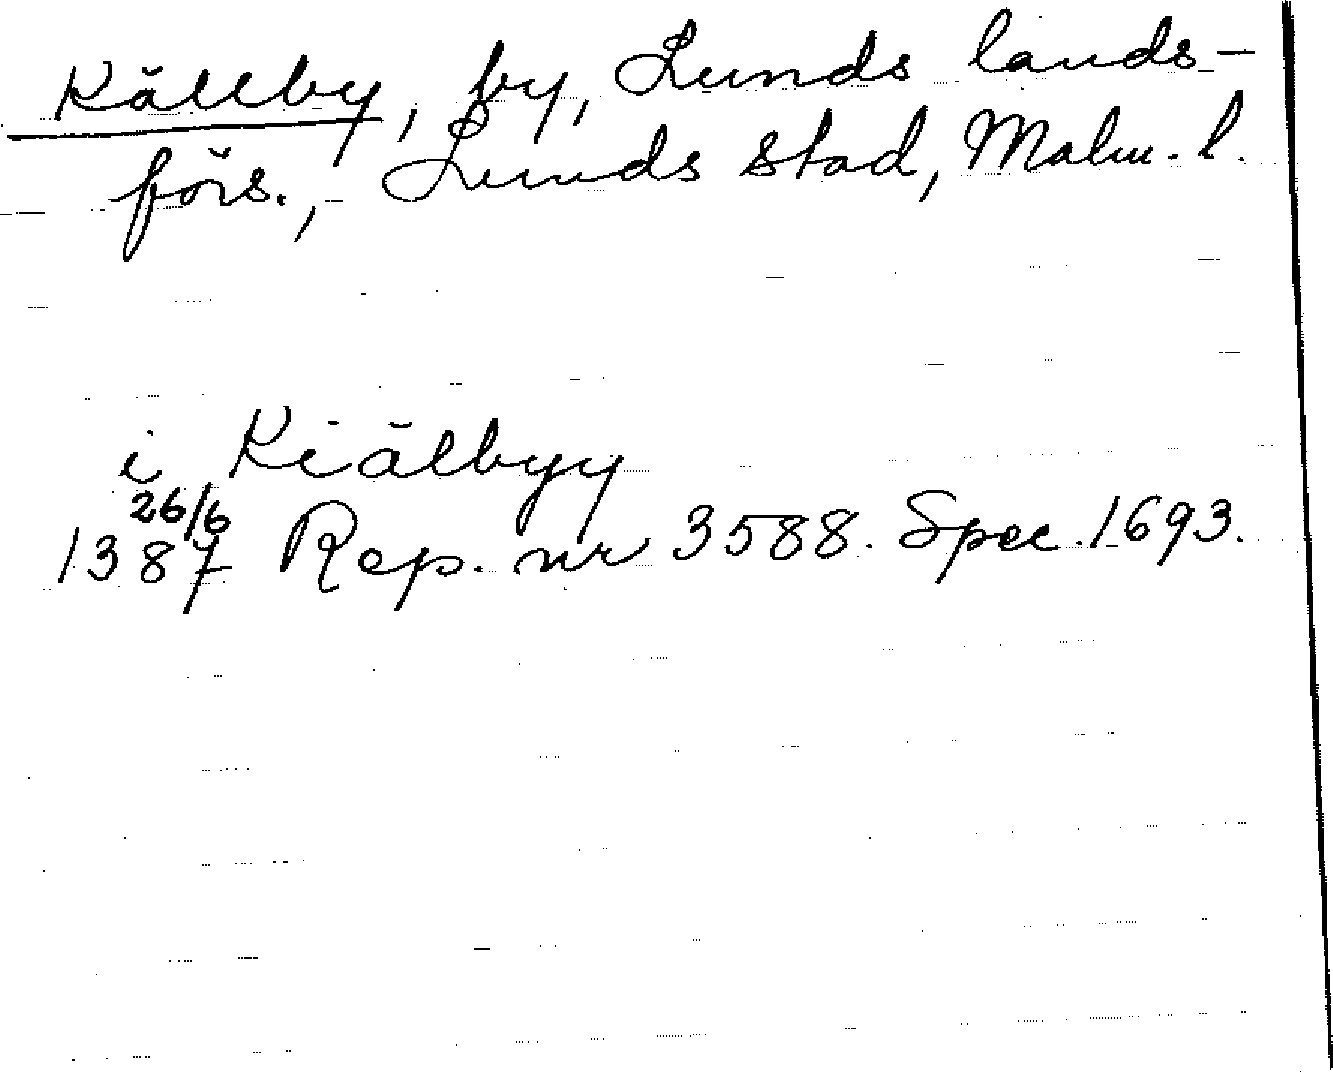 Källby, by, Lunds lands-
förs., Lunds stad, Malm. l.
i Kiälbyy
26/6
1387 Rep. nr 3588. Spec. 1693.